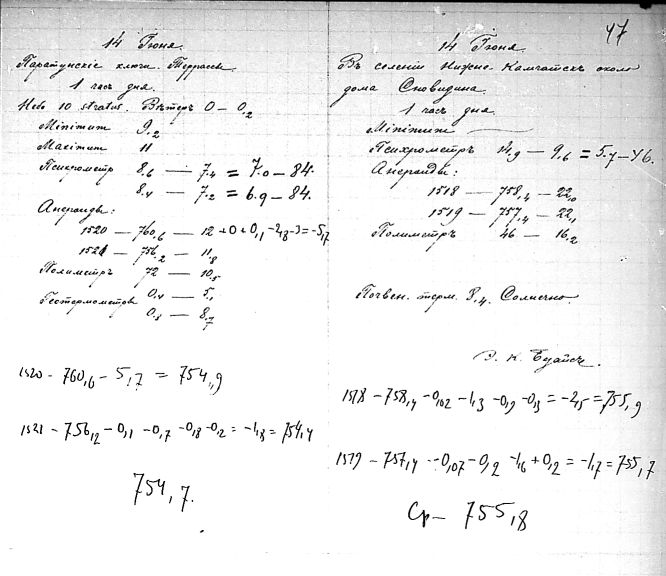 47
14 Іюня.
Паратунскіе ключи. Террасы.
1 часъ дня.
Небо 10 stratus. Вѣтеръ 0 – 0,2
Minimum 9,2
Maximum 11
Психрометр 8,6 — 7,4 = 7,0 – 84.
8,4 — 7,2 = 6,9 – 84.
Анероиды:
1520 — 760,6 — 12 + 0 + 0,1 – 2,8 – 3 = – 5,7
1521 — 756,2 — 11,8
Полиметръ 72 — 10,5
Геотермометръ 0,4 — 5,1
0,8 — 8,7
1520 – 760,6 – 5,7 = 754,9
1521 – 756,2 – 0,1 – 0,7 – 0,8 – 0,2 = – 1,8 = 754,4
754,7.
14 Іюня.
Въ селеніи Нижне-Камчатскъ около
дома Сновидина.
1 часъ дня.
Minimum —
Психрометръ 14,9 — 9,6 = 5,7 – 46.
Анероиды:
1518 — 758,4 — 22,0
1519 — 757,4 — 22,1
Полиметръ 46 — 16,2
Почвен. терм. 8,4. Солнечно.
1518 – 758,4 – 0,02 – 1,3 – 0,9 – 0,3 = – 2,5 = 755,9
1519 – 757,4 – 0,07 – 0,2 – 1,6 + 0,2 = – 1,7 = 755,7
Ср – 755,8